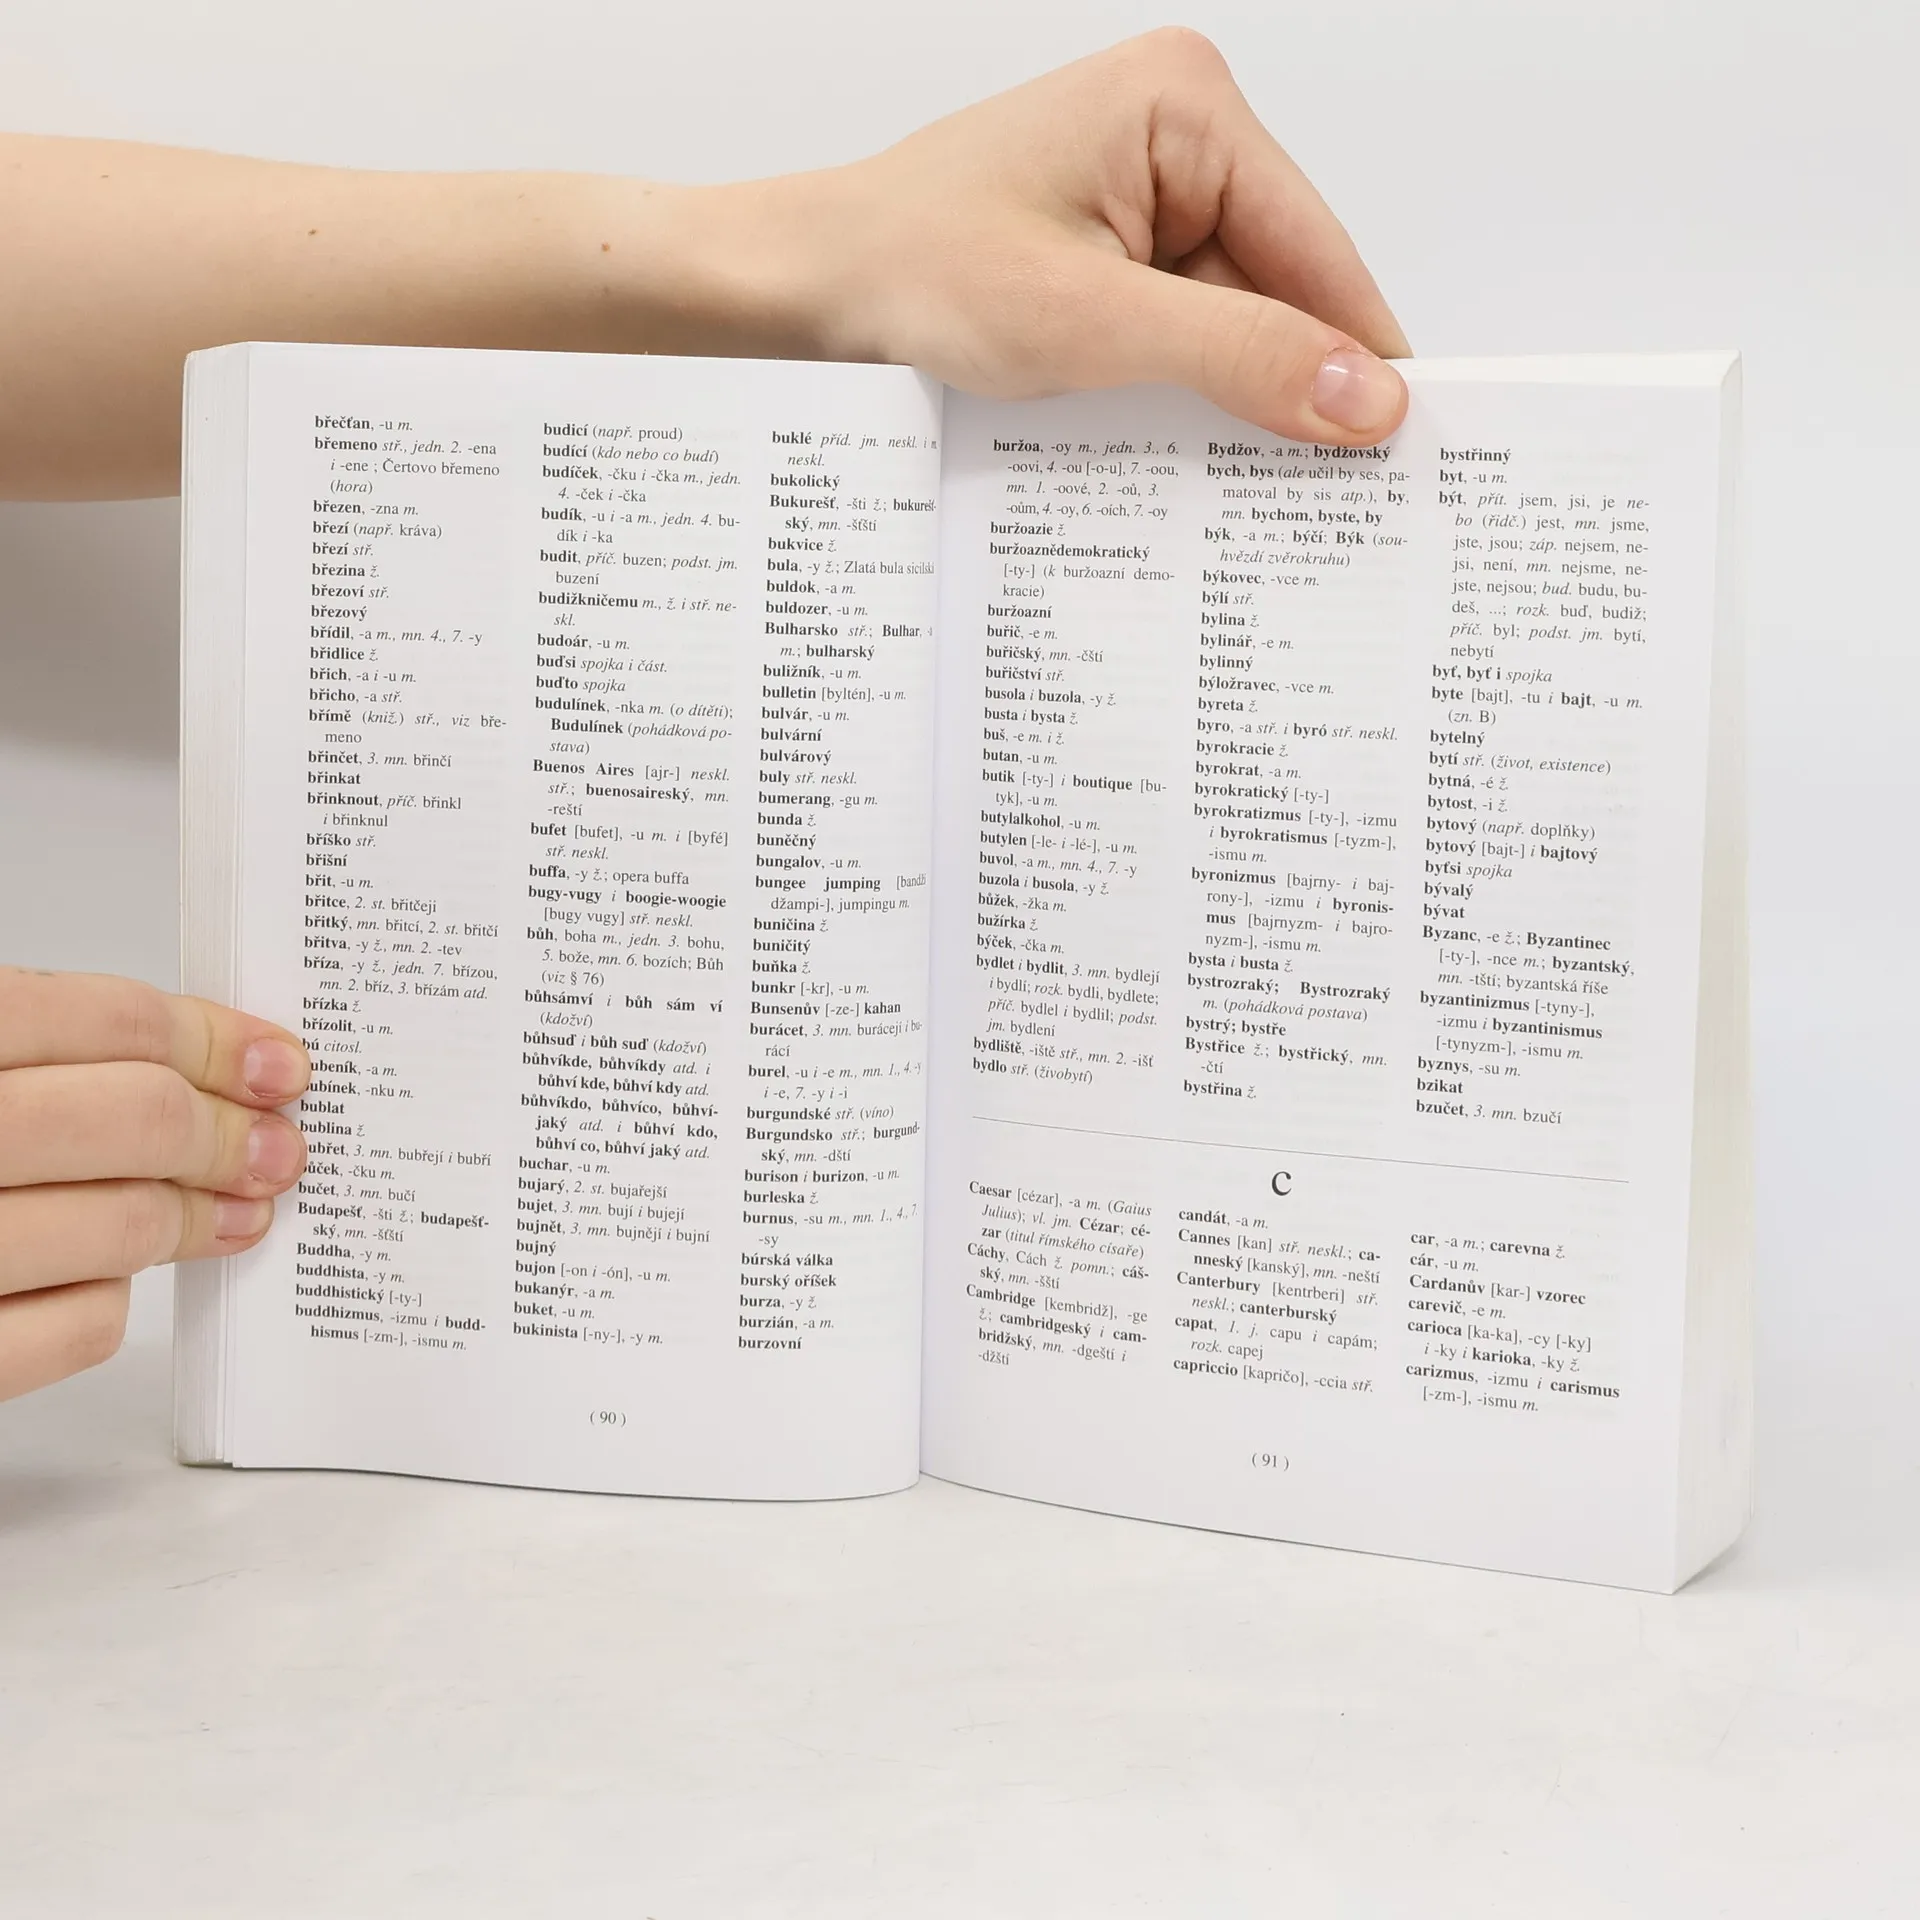 břečťan, -u m.
břemeno stř., jedn. 2. -ena
i -ene ; Čertovo břemeno
(hora)
březen, -zna m.
březí (např. kráva)
březí stř.
březina ž.
březoví stř.
březový
břídil, -a m., mn. 4., 7. -y
břidlice ž.
břich, -a i -u m.
břicho, -a stř.
břímě (kniž.) stř., viz bře-
meno
břinčet, 3. mn. břinčí
břinkat
břinknout, příč. břinkl
i břinknul
bříško stř.
břišní
břit, -u m.
břitce, 2. st. břitčeji
břitký, mn. břitcí, 2. st. břitčí
břitva, -y ž., mn. 2. -tev
bříza, -y ž., jedn. 7. břízou,
mn. 2. bříz, 3. břízám atd.
břízka ž.
břízolit, -u m.
bú citosl.
ubeník, -a m.
ubínek, -nku m.
bublat
bublina ž.
bubřet, 3. mn. bubřejí i bubří
bůček, -čku m.
bučet, 3. mn. bučí
Budapešť, -šti ž.; budapešť-
ský, mn. -šťští
Buddha, -y m.
buddhista, -y m.
buddhistický [-ty-]
buddhizmus, -izmu i budd-
hismus [-zm-], -ismu m.
budicí (např. proud)
budící (kdo nebo co budí)
budíček, -čku i -čka m., jedn.
4. -ček i -čka
budík, -u i -a m., jedn. 4. bu-
dík i -ka
budit, příč. buzen; podst. jm.
buzení
budižkničemu m., ž. i stř. ne-
skl.
budoár, -u m.
buďsi spojka i část.
buďto spojka
budulínek, -nka m. (o dítěti);
Budulínek (pohádková po-
stava)
Buenos Aires [ajr-] neskl.
stř.; buenosaireský, mn.
-reští
bufet [bufet], -u m. i [byfé]
stř. neskl.
buffa, -y ž.; opera buffa
bugy-vugy i boogie-woogie
[bugy vugy] stř. neskl.
bůh, boha m., jedn. 3. bohu,
5. bože, mn. 6. bozích; Bůh
(viz § 76)
bůhsámví i bůh sám ví
(kdožví)
bůhsuď i bůh suď (kdožví)
bůhvíkde, bůhvíkdy atd. i
bůhví kde, bůhví kdy atd.
bůhvíkdo, bůhvíco, bůhví-
jaký atd. i bůhví kdo,
bůhví co, bůhví jaký atd.
buchar, -u m.
bujarý, 2. st. bujařejší
bujet, 3. mn. bují i bujejí
bujnět, 3. mn. bujnějí i bujní
bujný
bujon [-on i -ón], -u m.
bukanýr, -a m.
buket, -u m.
bukinista [-ny-], -y m.
buklé příd. jm. neskl. i m.
neskl.
bukolický
Bukurešť, -šti ž.; bukurešť-
ský, mn. -šťští
bukvice ž.
bula, -y ž.; Zlatá bula sicilská
buldok, -a m.
buldozer, -u m.
Bulharsko stř.; Bulhar,
m.; bulharský
buližník, -u m.
bulletin [byltén], -u m.
bulvár, -u m.
bulvární
bulvárový
buly stř. neskl.
bumerang, -gu m.
bunda ž.
buněčný
bungalov, -u m.
bungee jumping [bandži
džampi-], jumpingu m.
buničina ž.
buničitý
buňka ž.
bunkr [-kr], -u m.
Bunsenův [-ze-] kahan
burácet, 3. mn. burácejí i bu-
rácí
burel, -u i -e m., mn. 1., 4. -y
i -e, 7. -y i -i
burgundské stř. (víno)
Burgundsko stř.; burgund-
ský, mn. -dští
burison i burizon, -u m.
burleska ž.
burnus, -su m., mn. 1., 4., 7.
-sy
búrská válka
burský oříšek
burza, -y ž.
burzián, -a m.
burzovní
( 90 )
buržoa, -oy m., jedn. 3., 6.
-oovi, 4. -ou [-o-u], 7. -oou,
mn. 1. -oové, 2. -oů, 3.
-oům, 4. -oy, 6. -oích, 7. -oy
buržoazie ž.
buržoaznědemokratický
[-ty-] (k buržoazní demo-
kracie)
buržoazní
buřič, -e m.
buřičský, mn. -čští
buřičství stř.
busola i buzola, -y ž.
busta i bysta ž.
buš, -e m. i ž.
butan, -u m.
butik [-ty-] i boutique [bu-
tyk], -u m.
butylalkohol, -u m.
butylen [-le- i -lé-], -u m.
buvol, -a m., mn. 4., 7. -y
buzola i busola, -y ž.
bůžek, -žka m.
bužírka ž.
býček, -čka m.
bydlet i bydlit, 3. mn. bydlejí
i bydlí; rozk. bydli, bydlete;
příč. bydlel i bydlil; podst.
jm. bydlení
bydliště, -iště stř., mn. 2. -išť
bydlo stř. (živobytí)
Bydžov, -a m.; bydžovský
bych, bys (ale učil by ses, pa-
matoval by sis atp.), by,
mn. bychom, byste, by
býk, -a m.; býčí; Býk (sou-
hvězdí zvěrokruhu)
býkovec, -vce m.
býlí stř.
bylina ž.
bylinář, -e m.
bylinný
býložravec, -vce m.
byreta ž.
byro, -a stř. i byró stř. neskl.
byrokracie ž.
byrokrat, -a m.
byrokratický [-ty-]
byrokratizmus [-ty-], -izmu
i byrokratismus [-tyzm-],
-ismu m.
byronizmus [bajrny- i baj-
rony-], -izmu i byronis-
mus [bajrnyzm- i bajro-
nyzm-], -ismu m.
bysta i busta ž.
bystrozraký; Bystrozraký
m. (pohádková postava)
bystrý; bystře
Bystřice ž.; bystřický, mn.
-čtí
bystřina ž.
bystřinný
byt, -u m.
být, přít. jsem, jsi, je ne-
bo (řidč.) jest, mn. jsme,
jste, jsou; záp. nejsem, ne-
jsi, není, mn. nejsme, ne-
jste, nejsou; bud. budu, bu-
deš, ...; rozk. buď, budiž;
příč. byl; podst. jm. bytí,
nebytí
byť, byť i spojka
byte [bajt], -tu i bajt, -u m.
(zn. B)
bytelný
bytí stř. (život, existence)
bytná, -é ž.
bytost, -i ž.
bytový (např. doplňky)
bytový [bajt-] i bajtový
byťsi spojka
bývalý
bývat
Byzanc, -e ž.; Byzantinec
[-ty-], -nce m.; byzantský,
mn. -tští; byzantská říše
byzantinizmus [-tyny-],
-izmu i byzantinismus
[-tynyzm-], -ismu m.
byznys, -su m.
bzikat
bzučet, 3. mn. bzučí
C
Caesar [cézar], -a m. (Gaius
Julius); vl. jm. Cézar; cé-
zar (titul římského císaře)
Cáchy, Cách ž. pomn.; cáš-
ský, mn. -šští
Cambridge [kembridž], -ge
ž.; cambridgeský i cam-
bridžský, mn. -dgeští i
-džští
candát, -a m.
Cannes [kan] stř. neskl.; ca-
nneský [kanský], mn. -neští
Canterbury [kentrberi] stř.
neskl.; canterburský
capat, 1. j. capu i capám;
rozk. capej
capriccio [kapričo], -ccia stř.
car, -a m.; carevna ž.
cár, -u m.
Cardanův [kar-] vzorec
carevič, -e m.
carioca [ka-ka], -cy [-ky]
i -ky i karioka, -ky ž.
carizmus, -izmu i carismus
[-zm-], -ismu m.
( 91 )